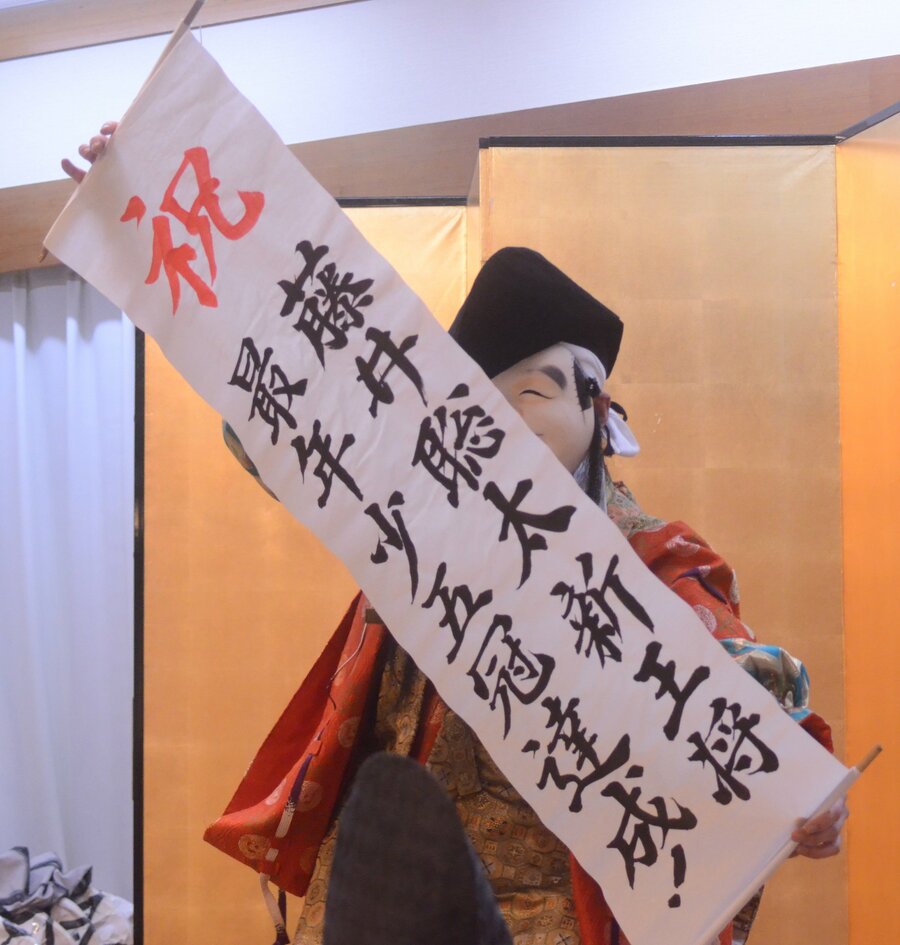 祝
藤井聡太新王将
最年少五冠達成!